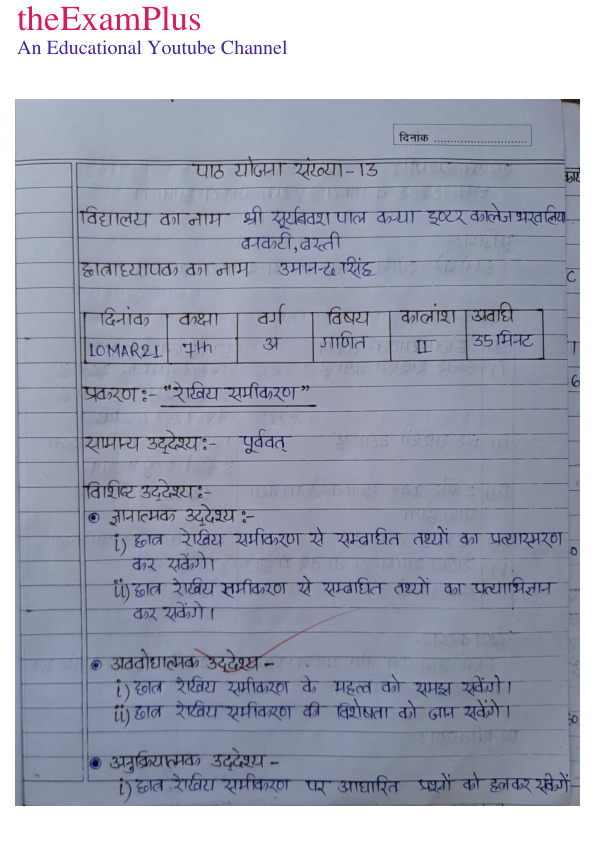 theExamPlus
An Educational Youtube Channel
दिनांक ..............................
पाठ योजना संख्या-13
विद्यालय का नाम श्री सूर्यबक्श पाल कन्या इण्टर कालेज
बनकटी, बस्ती
छात्राध्यापक का नाम उमानन्द सिंह
दिनांक कक्षा वर्ग विषय कालांश अवधि
10MAR21 7th अ गणित II 35 मिनट
प्रकरण:- "रेखिय समीकरण"
सामान्य उद्देश्य:- पूर्ववत्
विशिष्ट उद्देश्य:-
● ज्ञानात्मक उद्देश्य:-
i) छात्र रेखिय समीकरण से सम्बंधित तथ्यों का प्रत्यास्मरण
कर सकेंगे।
ii) छात्र रेखिय समीकरण से सम्बंधित तथ्यों का प्रत्याभिज्ञान
कर सकेंगे।
● अवबोधात्मक उद्देश्य-
i) छात्र रेखिय समीकरण के महत्व को समझ सकेंगे।
ii) छात्र रेखिय समीकरण की विशेषता को जान सकेंगे।
● अनुक्रियात्मक उद्देश्य-
i) छात्र रेखिय समीकरण पर आधारित प्रश्नों को हल कर सकेंगे